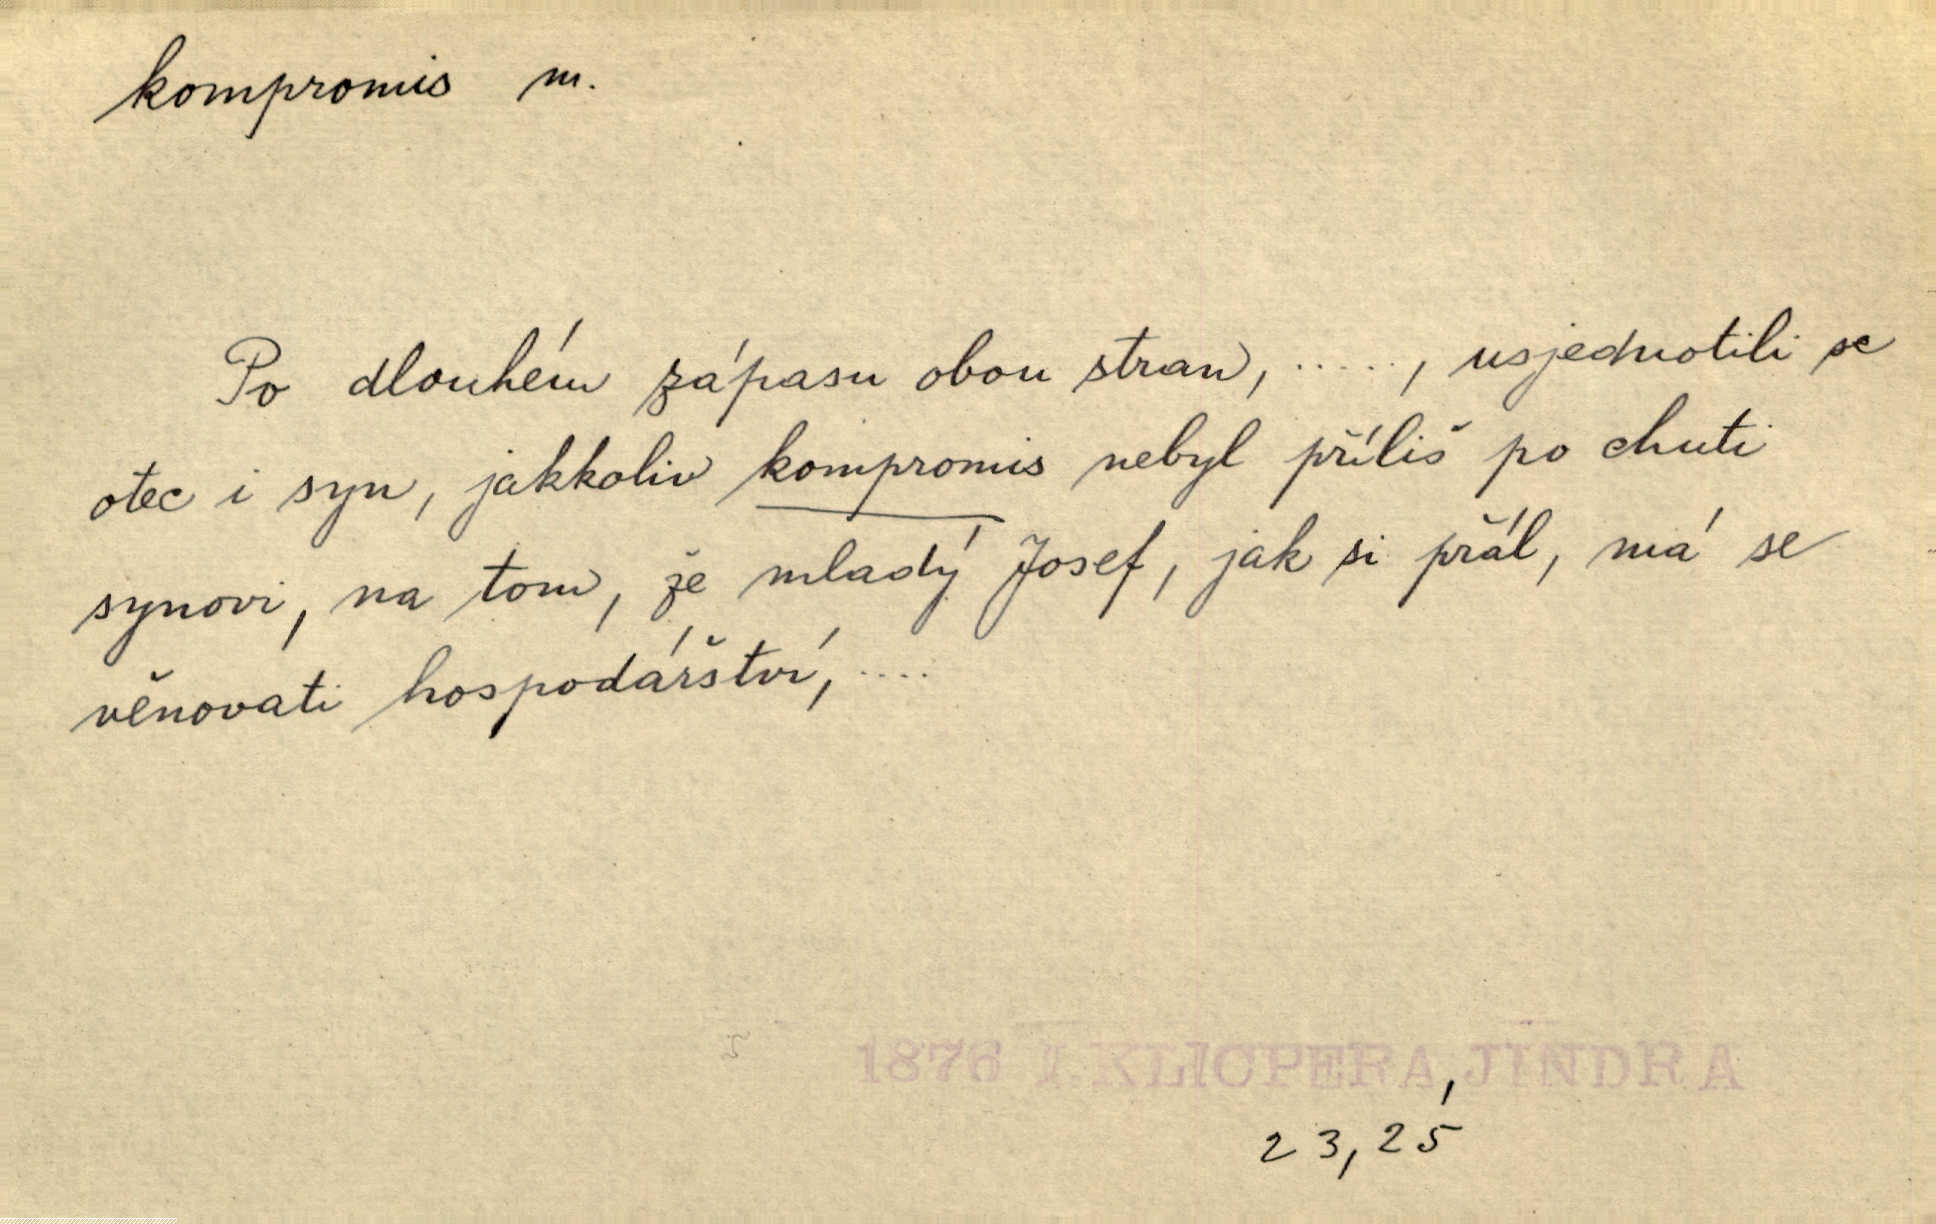 kompromis m.
Po dlouhém zápasu obou stran, ....., usjednotili se
otec i syn, jakkoliv kompromis nebyl příliš po chuti
synovi, na tom, že mladý Josef, jak si přál, má se
věnovati hospodářství, ....
1876 I. KLICPERA, JINDRA
23,25